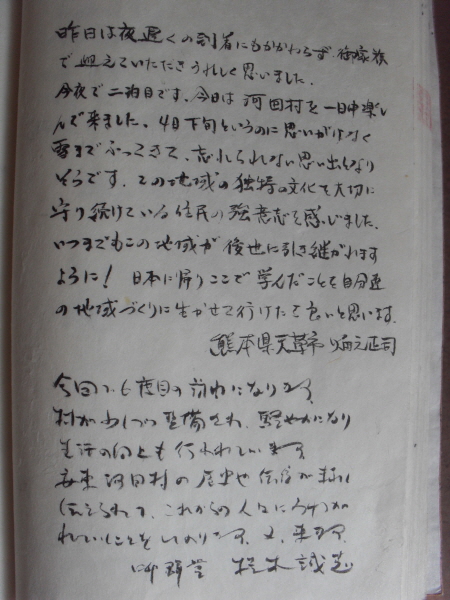 昨日は夜遅くの到着にもかかわらず、御家族
で迎えていただきうれしく思いました。
今夜で二泊目です。今日は河回村を一日中楽し
んで来ました。4月下旬というのに思いがけなく
雪までふってきて、忘れられない思い出になり
そうです。この地域の独特の文化を大切に
守り続けている住民の強い意志を感じました。
いつまでもこの地域が後世に引き継がれます
ように！ 日本に帰りここで学んだことを自分達
の地域づくりに生かせて行けたら良いと思います。
熊本県天草市
今回で6度目の訪れになります。
村が少しづつ整備され、軽やかになり
生活の向上も行われています
河回村の歴史や伝
伝えられて、これからの人々に
れていくことを 又、来ます。